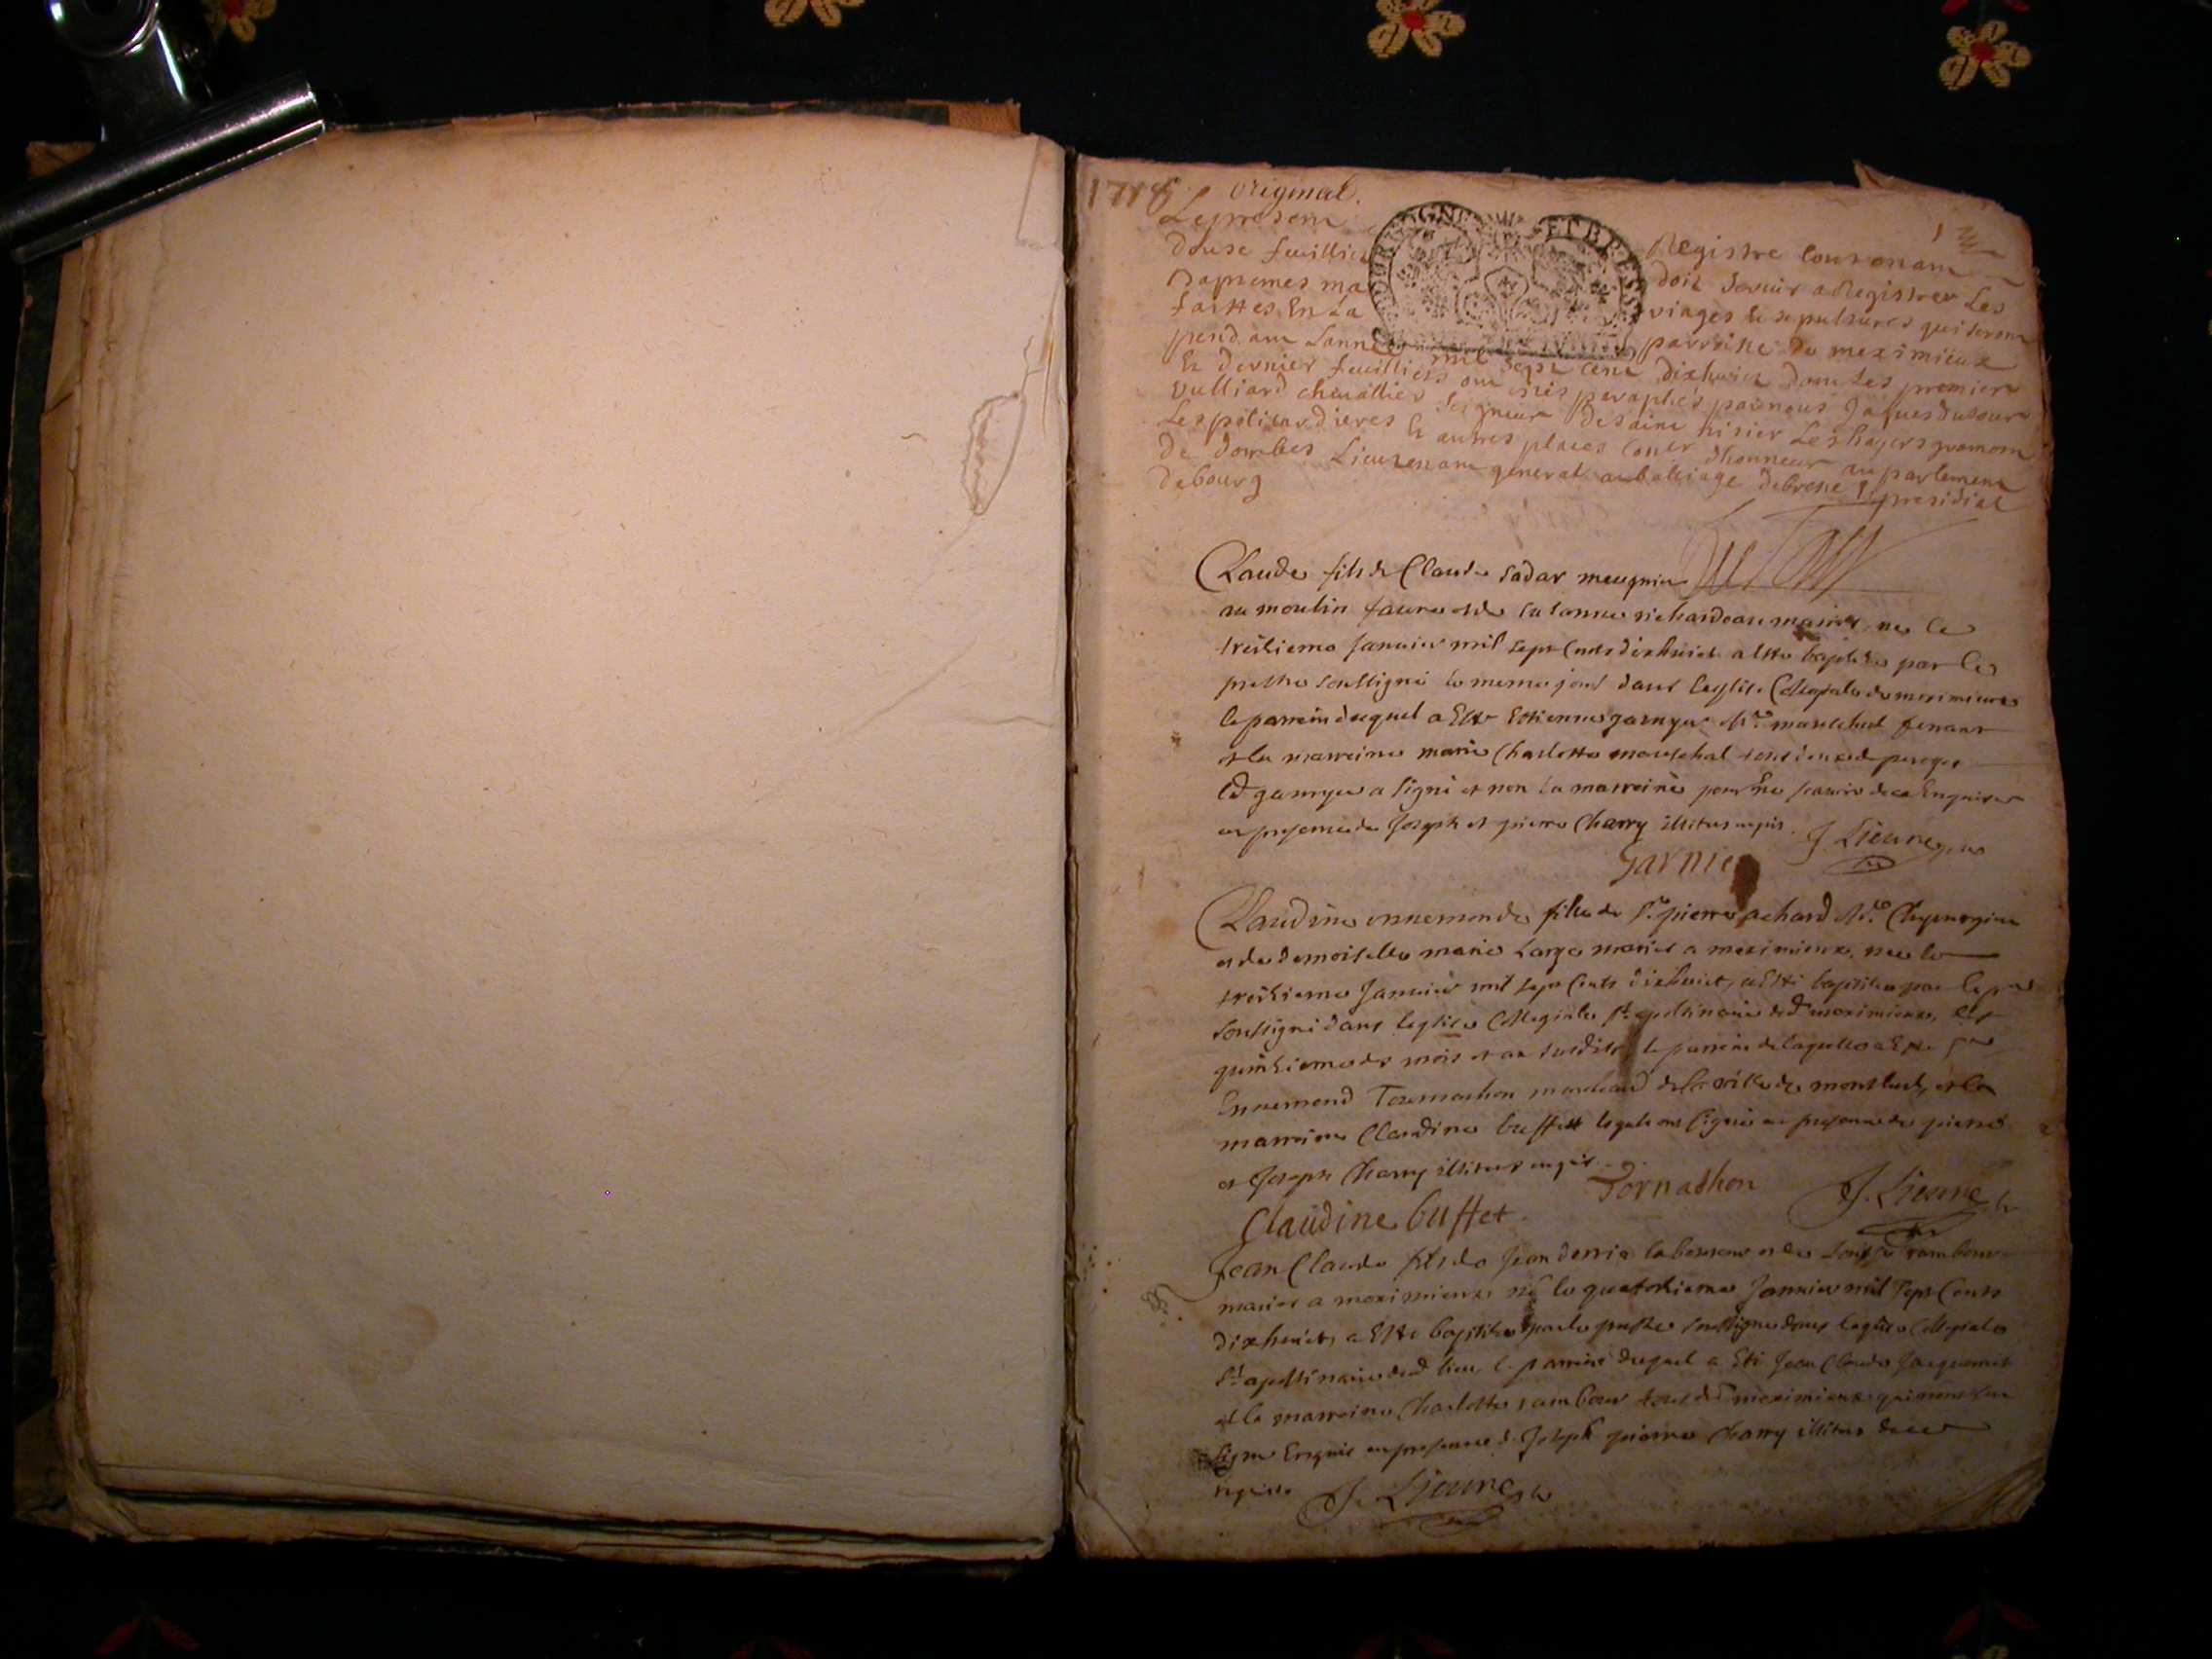 1718
original.
1
Le present Registre contenant
douse feuillies doit servir a Registrer les
Baptemes mariages & sepultures qui seront
faittes En La parroisse de meximieux
pendant Lannee mil sept cent dixhuict dont les premier
& dernier feuilliets ont estés paraphés par nous Jaques dutour
vulliard chevallier seigneur de saint nisier
Les & autres places coner dhonneur au parlement
de dombes Lieutenant general au bailiage de bresse & presidial
de bourg
BOURGOGNE ET BRESSE
Claude fils de Claude sadar meugnier
au moulin et de susanne mariés né le
treisieme Janvier mil sept cents dixhuict a esté baptisé par le
prestre soussigné le meme jour dans leglise Collegiale de meximieux
le parrein duquel a Esté Estienne garnyer Me mareschal
et la marreine marie Charlotte mareschal
led garnyer a signé et non la marreine pour ne scavoir de ce Enquise
en presence de Joseph et pierre Charry illiteres
J Lieure
Garnier
Claudine ennemonde fille de Sr pierre achard Me Chyrurgien
et de demoiselle marie Large mariés a meximieux, née le
treisieme Janvier mil sept cents dixhuict, a esté baptisée par le
soussigné dans leglise Collegiale St apollinaire dud meximieux, le
quinsieme des mois et an susdits, le parrein de laquelle a Esté
Ennemond Tornachon marchand de la ville de montluel, et la
marreine Claudine buffet lesquels ont signé en presence de pierre
et Joseph Charry illiteres
Tornachon
J. Lieure
Claudine buffet
Jean Claude fils de Jean laboureur et de rambour
mariés a meximieux né le quatorsieme Janvier mil sept Cents
dixhuict, a esté baptisé par le prestre soussigné dans leglise Collegiale
St apollinaire dud lieu, le parrein duquel a Eté Jean Claude Jacquemet
et la marreine Charlotte rambour tous dud meximieux qui nont sceu
signer Enquis en presence de Joseph pierre Charry illiteres de ce
requis
J. Lieure